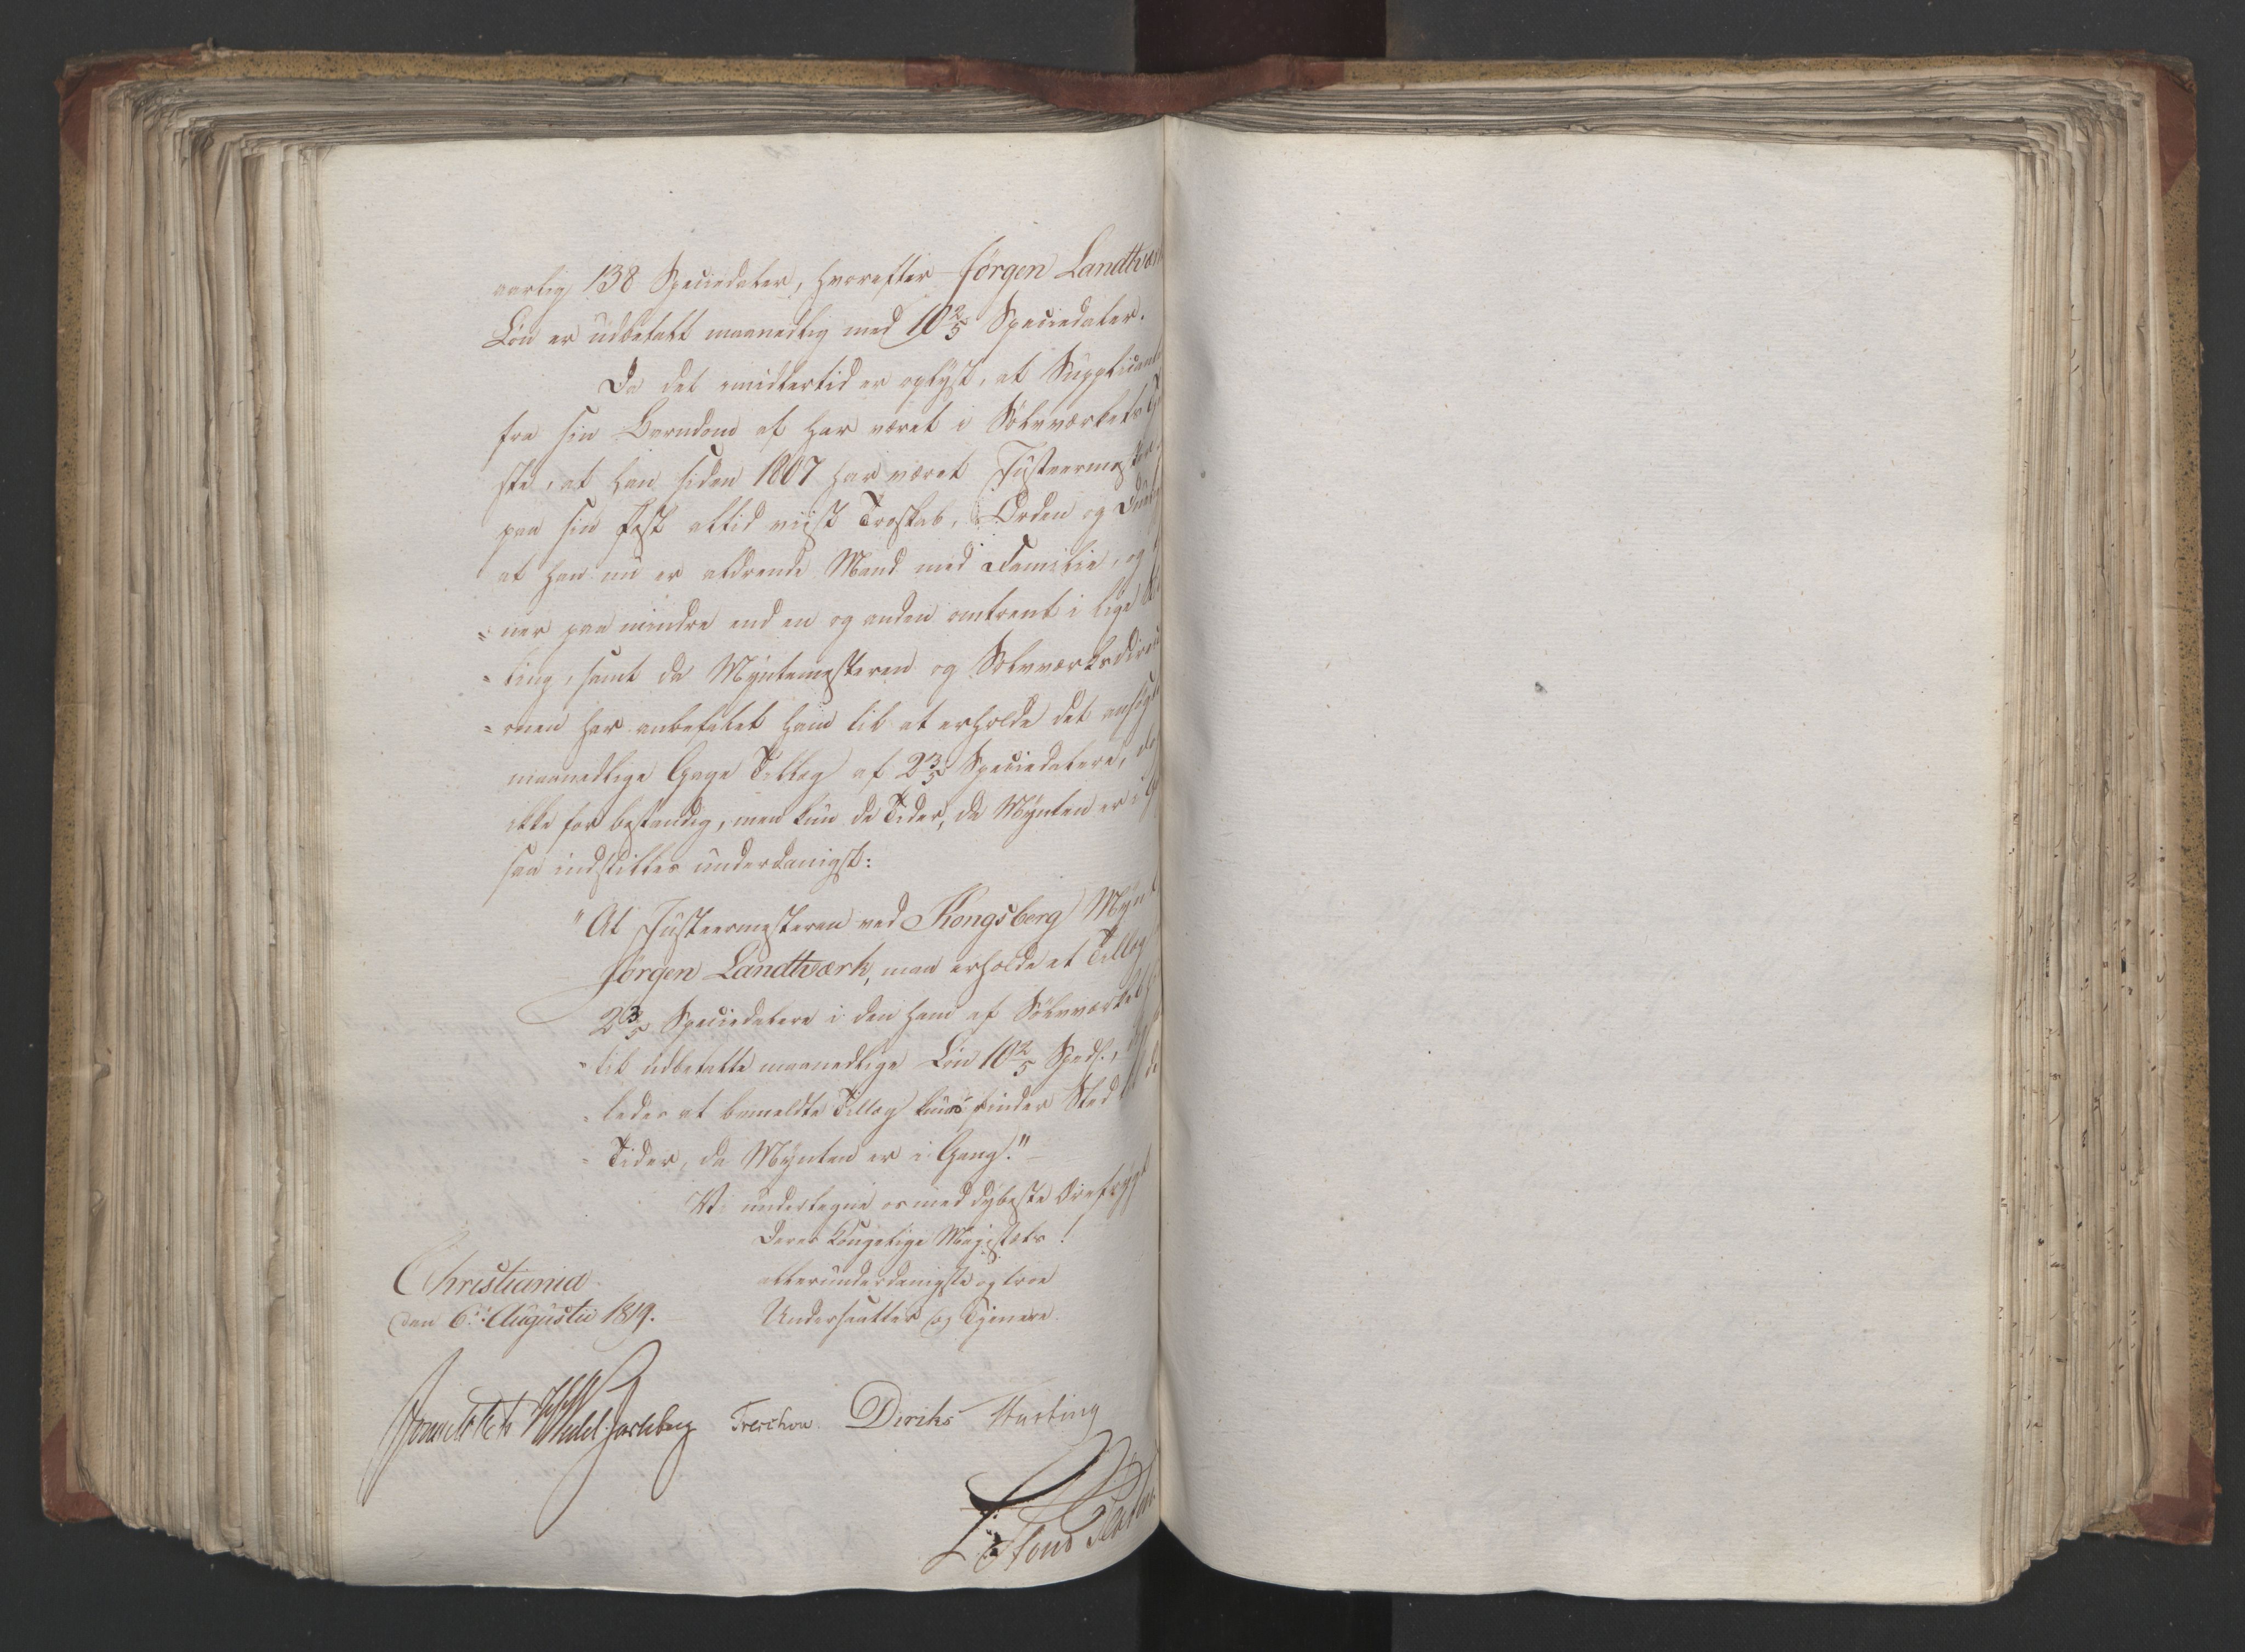 aarlig 138 Speciedaler, hvorefter Jørgen Landtværk
Løn er udbetalt maanedlig med 10 2/5 Speciedaler.
Da det imidlertid er oplyst, at Supplicanten
fra sin Barndom af har været i Sølvværkets
ste, at han siden 1807 har været Justeermester
paa sin Post altid viist Troskab, Orden og
at han nu er aldrende Mand med Familie, og
=ner paa mindre end en og anden omtrent i lige
=ling, samt da Myntmesteren og Sølvværksdirec
=onen har anbefalet ham til at erholde det ansøgte
maanedlige Gage Tillæg af 2 3/5 Speciedalere, dog
ikke for bestandig, men kun de Tider, da Mynten er i
saa indstilles underdanigst:
"At Justeermesteren ved Kongsberg Mynt
Jørgen Landtværk, maa erholde et Tillæg
2 3/5 Speciedalere i den ham af Sølvværket
=til udbetalte maanedlige Løn 10 2/5 Spdl.,
=ledes at bemeldte Tillæg kun finder Sted de
Tider, da Mynten er i Gang."
Vi undertegne os med dybeste Ærefrygt
Deres Kongelige Majestæts!
allerunderdanigste og troe
Undersaatter og Tjenere.
Christiania
den 6te Augusti 1819.
Wedel Jarlsberg Treschow Diriks